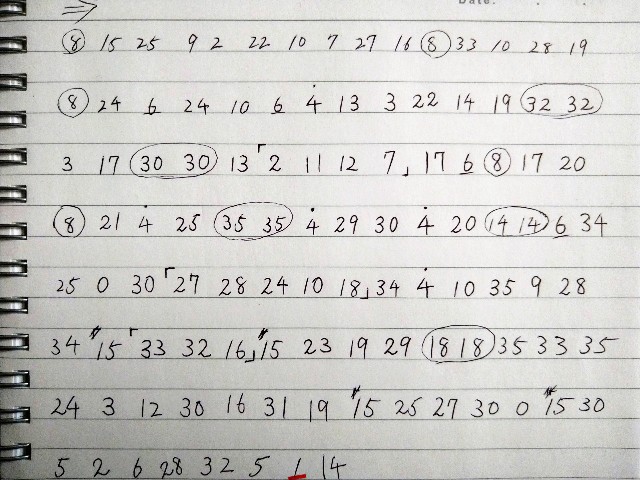 Date:
⇒
8 15 25 9 2 22 10 7 27 16 8 33 10 28 19
8 24 6 24 10 6 4 13 3 22 14 19 32 32
3 17 30 30 13 「2 11 12 7」 17 6 8 17 20
8 21 4 25 35 35 4 29 30 4 20 14 14 6 34
25 0 30 「27 28 24 10 18」 34 4 10 35 9 28
34 #15 「33 32 16」 #15 23 19 29 18 18 35 33 35
24 3 12 30 16 31 19 #15 25 27 30 0 #15 30
5 2 6 28 32 5 1 14